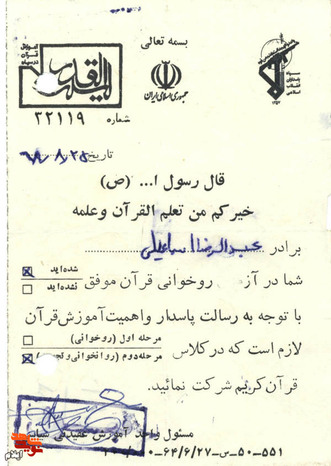 بسمه تعالی
جمهوری اسلامی ایران
سپاه پاسداران انقلاب اسلامی
آموزش قرآن در سپاه
شماره ۳۲۱۱۹
تاریخ ۶۸/۸/۲۵
قال رسول ا... (ص)
خیرکم من تعلم القرآن وعلمه
برادر عبدالرضا اسماعیلی
شما در آز روخوانی قرآن موفق شده‌اید نشده‌اید
با توجه به رسالت پاسدار واهمیت آموزش قرآن
لازم است که در کلاس مرحله اول (روخوانی) مرحله دوم (روانخوانی وتجوید)
قرآن کریم شرکت نمائید.
مسئول واحد آموزش عقیدتی سیاسی
۵۵۱-۵۰-س-۶۴/۶/۲۷